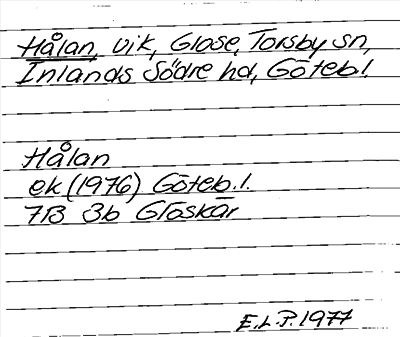 Hålan, vik, Glose, Torsby sn,
Inlands Södre hd, Göteb l.
Hålan
ek (1976) Göteb. l.
7B 3b Glöskär
E.L.P. 1977